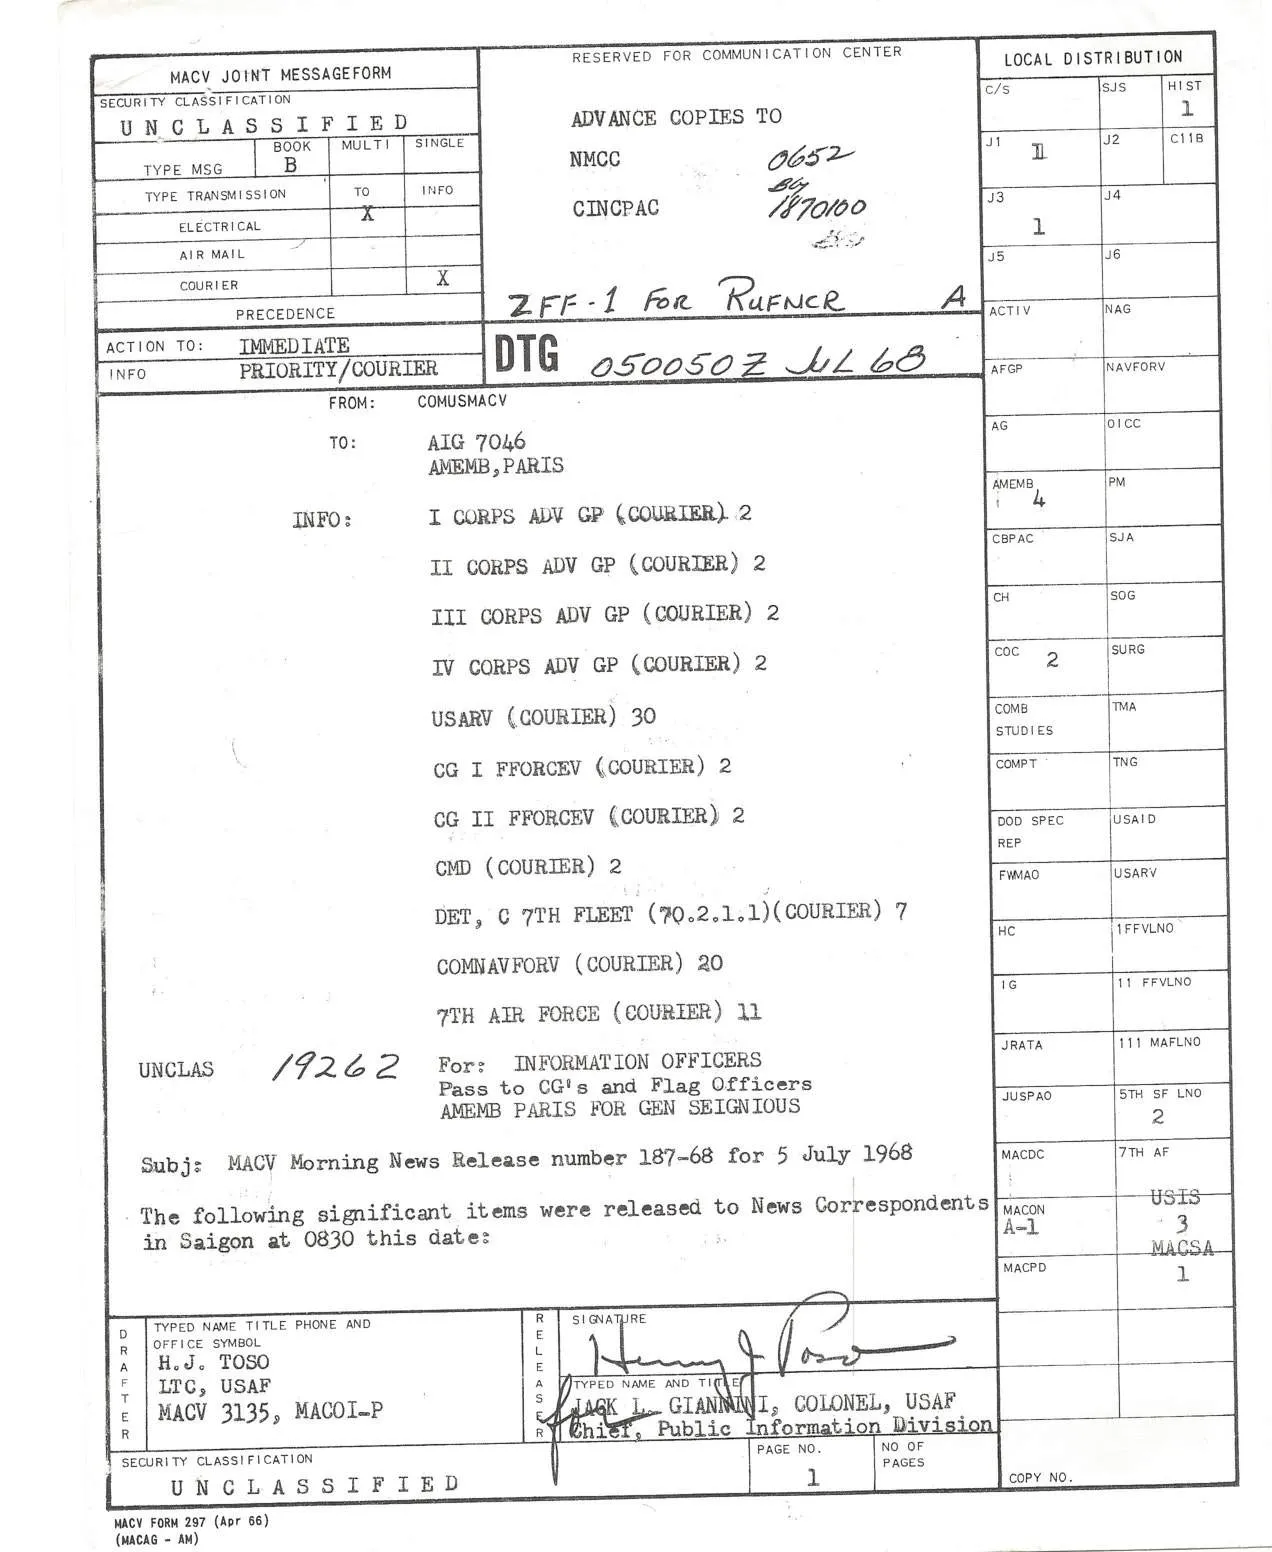 MACV JOINT MESSAGEFORM
SECURITY CLASSIFICATION
UNCLASSIFIED
TYPE MSG
BOOK
B
MULTI
SINGLE
TYPE TRANSMISSION
TO
X
INFO
ELECTRICAL
AIR MAIL
COURIER
X
PRECEDENCE
ACTION TO: IMMEDIATE
INFO PRIORITY/COURIER
RESERVED FOR COMMUNICATION CENTER
ADVANCE COPIES TO
NMCC 0652
CINCPAC 1870100
ZFF-1 FOR RUFNCR A
DTG 050050Z JUL 68
FROM: COMUSMACV
TO: AIG 7046
AMEMB, PARIS
INFO: I CORPS ADV GP (COURIER) 2
II CORPS ADV GP (COURIER) 2
III CORPS ADV GP (COURIER) 2
IV CORPS ADV GP (COURIER) 2
USARV (COURIER) 30
CG I FFORCEV (COURIER) 2
CG II FFORCEV (COURIER) 2
CMD (COURIER) 2
DET, C 7TH FLEET (70.2.1.1)(COURIER) 7
COMNAVFORV (COURIER) 20
7TH AIR FORCE (COURIER) 11
UNCLAS 19262 For: INFORMATION OFFICERS
Pass to CG's and Flag Officers
AMEMB PARIS FOR GEN SEIGNIOUS
Subj: MACV Morning News Release number 187-68 for 5 July 1968
The following significant items were released to News Correspondents
in Saigon at 0830 this date:
LOCAL DISTRIBUTION
C/S
SJS
HIST
1
J1
1
J2
C11B
J3
1
J4
J5
J6
ACTIV
NAG
AFGP
NAVFORV
AG
OICC
AMEMB
4
PM
CBPAC
SJA
CH
SOG
COC 2
SURG
COMB
STUDIES
TMA
COMPT
TNG
DOD SPEC
REP
USAID
FWMAO
USARV
HC
1FFVLNO
IG
11 FFVLNO
JRATA
111 MAFLNO
JUSPAO
5TH SF LNO
2
MACDC
7TH AF
MACON
A-1
USIS
3
MACPD
MACSA
1
COPY NO.
DRAFTER
TYPED NAME TITLE PHONE AND
OFFICE SYMBOL
H.J. TOSO
LTC, USAF
MACV 3135, MACOI-P
RELEASER
SIGNATURE
Henry J Toso
TYPED NAME AND TITLE
for JACK L. GIANNINI, COLONEL, USAF
Chief, Public Information Division
SECURITY CLASSIFICATION
UNCLASSIFIED
PAGE NO.
1
NO OF
PAGES
MACV FORM 297 (Apr 66)
(MACAG - AM)